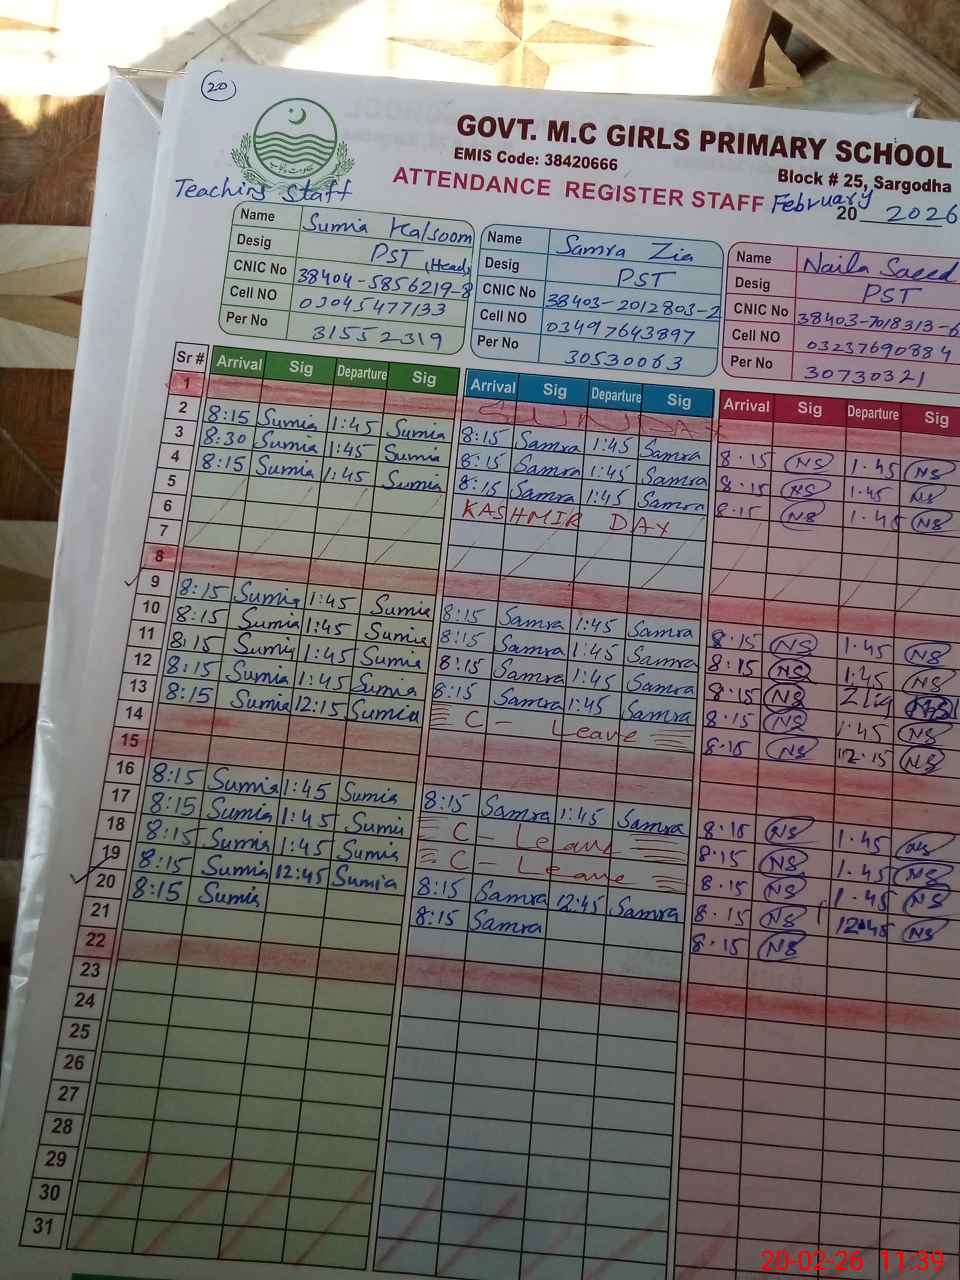 20
GOVT. M.C GIRLS PRIMARY SCHOOL
EMIS Code: 38420666
Block # 25, Sargodha
Teaching Staff
ATTENDANCE REGISTER STAFF February 20 2026
Name Sumia Kalsoom
Desig PST (Head)
CNIC No 38404-5856219-8
Cell NO 03045477133
Per No 31552319
Name Samra Zia
Desig PST
CNIC No 38403-2012803-2
Cell NO 03497643897
Per No 30530063
Name Naila Saeed
Desig PST
CNIC No 38403-7018313-6
Cell NO 03237690884
Per No 30730321
Sr # Arrival Sig Departure Sig Arrival Sig Departure Sig Arrival Sig Departure Sig
1 SUNDAY
2 8:15 Sumia 1:45 Sumia 8:15 Samra 1:45 Samra 8.15 NS 1.45 NS
3 8:30 Sumia 1:45 Sumia 8:15 Samra 1:45 Samra 8.15 NS 1.45 NS
4 8:15 Sumia 1:45 Sumia 8:15 Samra 1:45 Samra 8.15 NS 1.45 NS
5 KASHMIR DAY
6
7
8
9 8:15 Sumia 1:45 Sumia 8:15 Samra 1:45 Samra 8.15 NS 1.45 NS
10 8:15 Sumia 1:45 Sumia 8:15 Samra 1:45 Samra 8.15 NS 1:45 NS
11 8:15 Sumia 1:45 Sumia 8:15 Samra 1:45 Samra 8.15 NS
12 8:15 Sumia 1:45 Sumia 8:15 Samra 1:45 Samra 8.15 NS 1.45 NS
13 8:15 Sumia 12:15 Sumia C - Leave 8.15 NS 12.15 NS
14
15
16 8:15 Sumia 1:45 Sumia 8:15 Samra 1:45 Samra 8.15 NS 1.45 NS
17 8:15 Sumia 1:45 Sumia C - Leave 8.15 NS 1.45 NS
18 8:15 Sumia 1:45 Sumia C - Leave 8.15 NS 1.45 NS
19 8:15 Sumia 12:45 Sumia 8:15 Samra 12:45 Samra 8.15 NS 12.45 NS
20 8:15 Sumia 8:15 Samra 8.15 NS
21
22
23
24
25
26
27
28
29
30
31
20-02-26 11:39